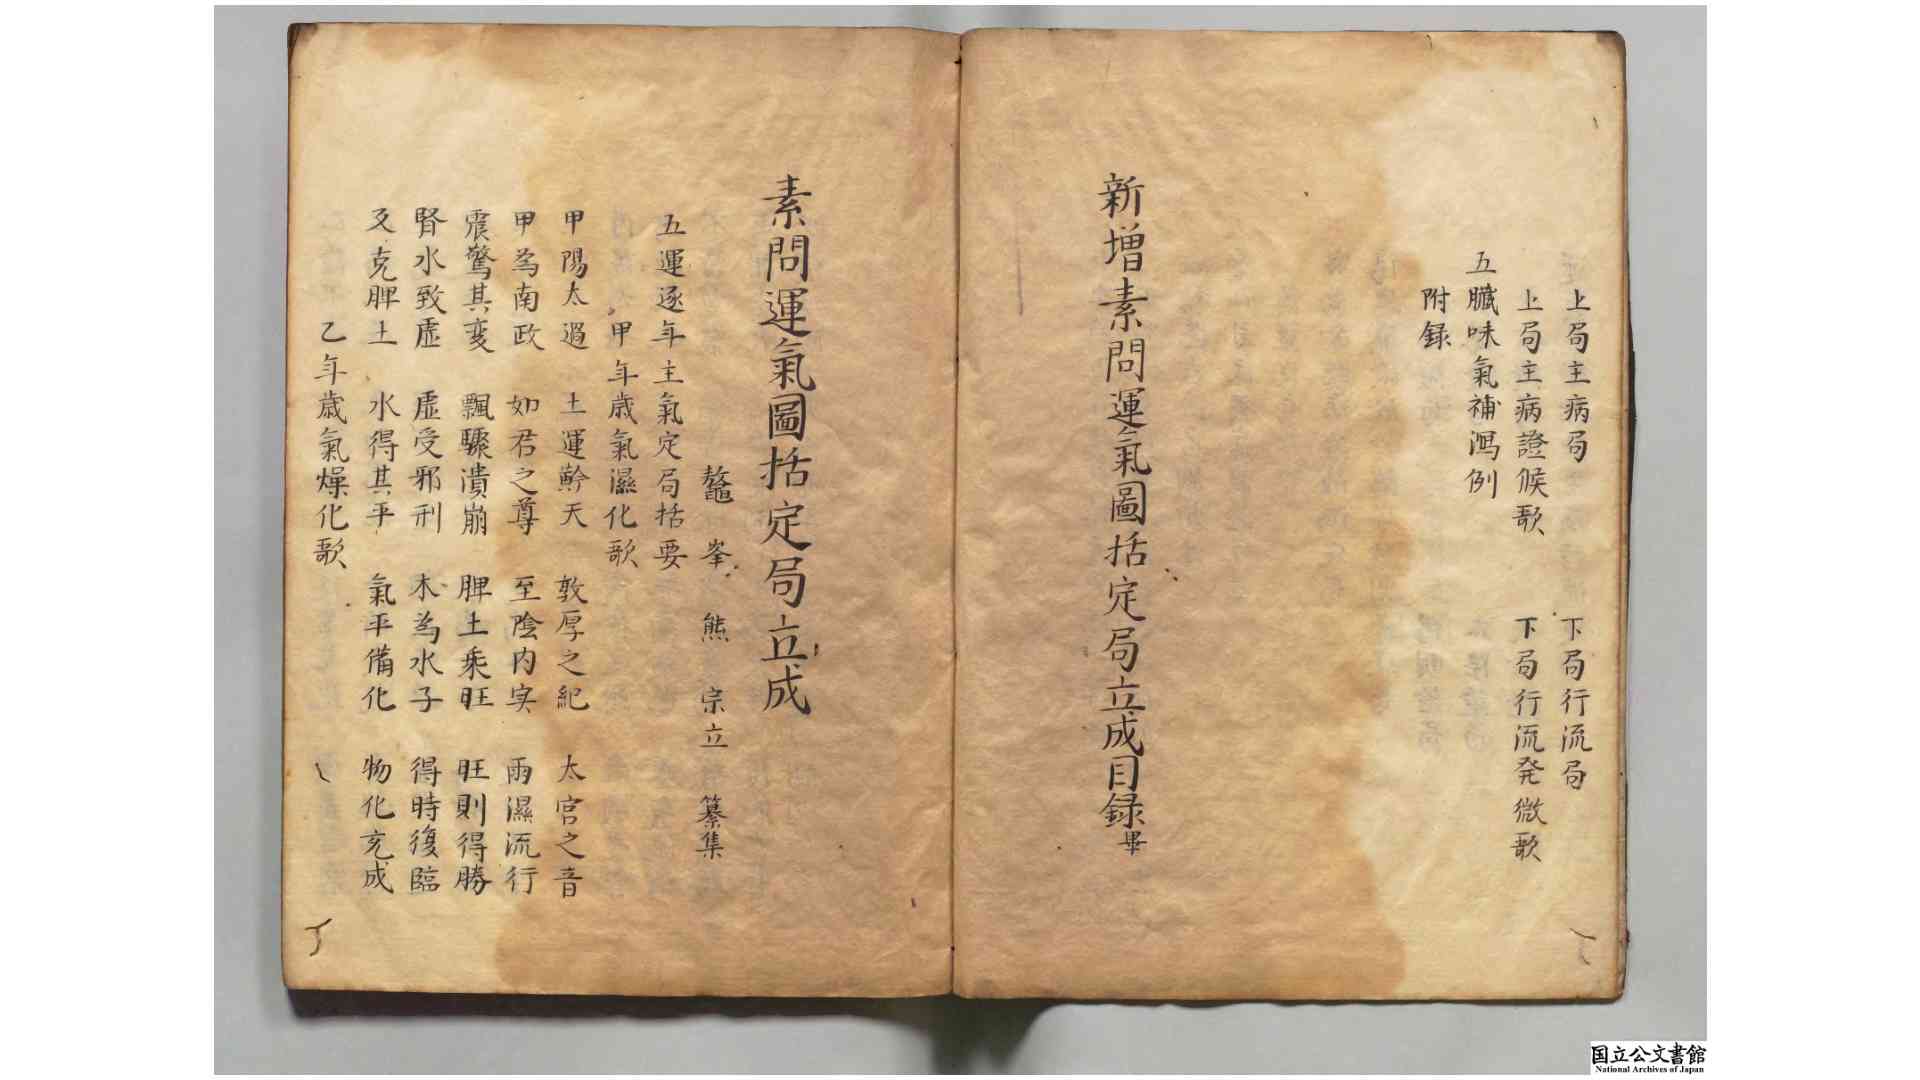 上局主病局　下局行流局
上局主病證候歌　下局行流発微歌
五臓味氣補瀉例
附録
新增素問運氣圖括定局立成目録畢
素問運氣圖括定局立成
鼇峯　熊　宗立　纂集
五運逐年主氣定局括要
甲年歳氣濕化歌
甲陽太過　土運黅天　敦厚之紀　太宮之音
甲為南政　如君之尊　至陰内実　雨濕流行
震驚其変　飄驟潰崩　脾土乘旺　旺則得勝
腎水致虚　虚受邪刑　木為水子　得時復臨
又克脾土　水得其平　氣平備化　物化充成
乙年歳氣燥化歌
国立公文書館
National Archives of Japan